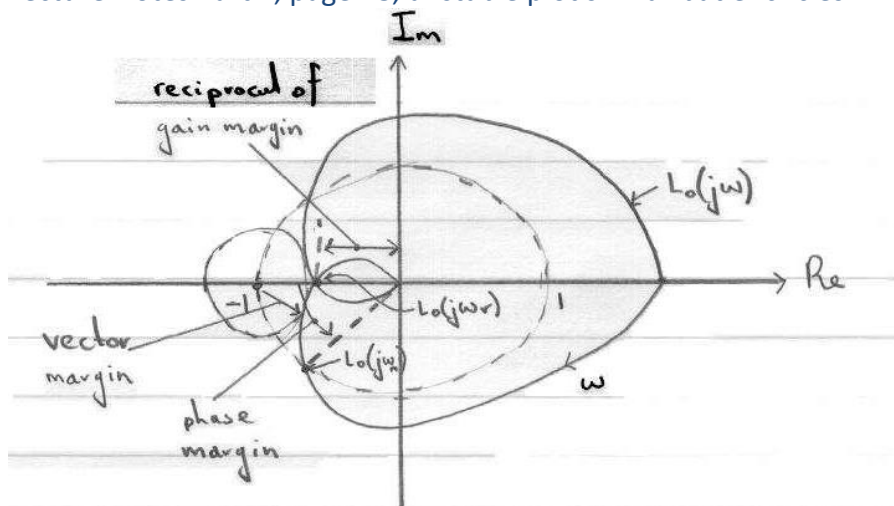 Im
reciprocal of
gain margin
L₀(jω)
Re
-1
1
L₀(jωr)
vector
margin
L₀(jωn)
ω
phase
margin